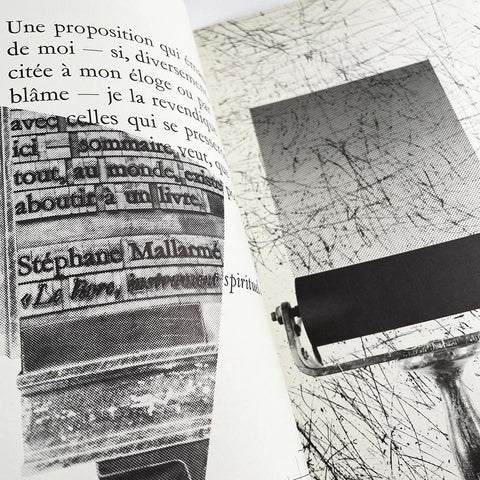 Une proposition qui
de moi — si,
citée à mon éloge ou
blâme — je la
avec celles qui se
ici — sommaire, veut,
tout, au monde,
aboutir à un livre.
Stéphane Mallarmé
«Le livre, instrument spirituel